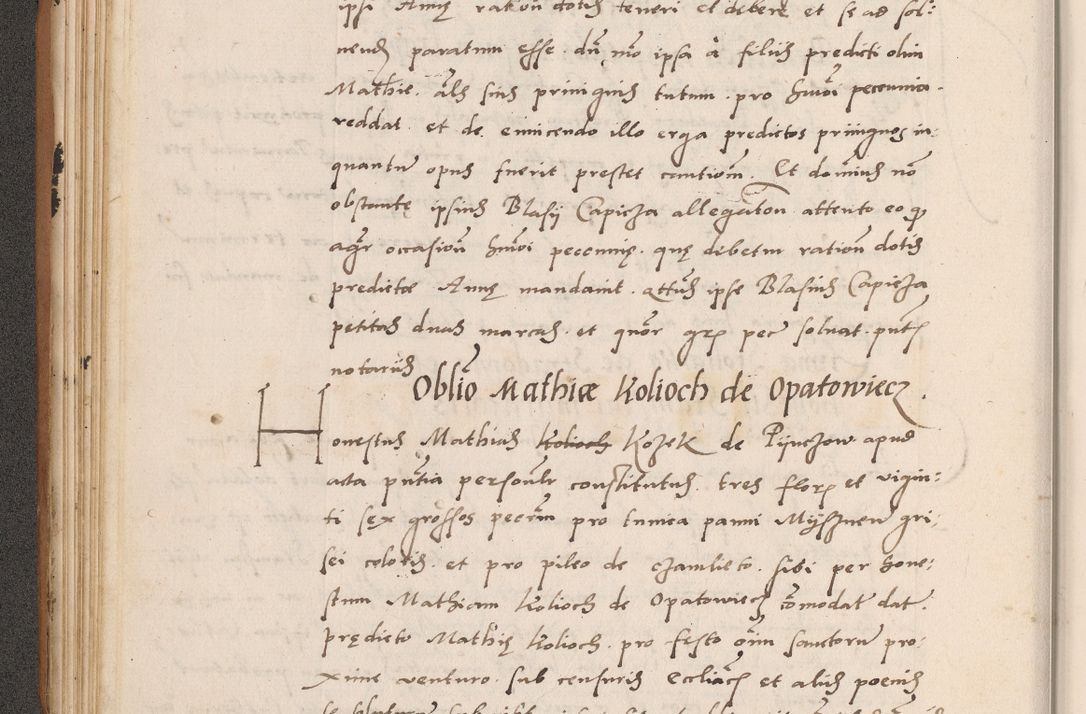 ipsi Annę ration dotis teneri et debere et se ad sol:
nend paratum esse. dn̄ m̄o ipsa a filiis predicti olim
Mathie. als suis priuignis tutum. pro hmōi pecunia.
reddat. et de euincendo illo erga predictos priuignos in:
quantū opus fuerit prestet cautiom̄. Et dominus nō
obstante ipsius Blasij Capicza allegation attento eo q
agr occasioň hmōi pecunię. quę debetur ration dotis
predictæ Annę mandauit. qttus ipse Blasius Capicza
petitas duas marcas. et quor grs pec̄ soluat. pntʒ
notariis
Oblio Mathiæ Kolioch de Opatowiecz.
Honestus Mathias Kolioch Kozek de Pijnczow apud
acta pntia personlr constitutus. tres flor et vigin:
ti sex grossos pecem̄ pro tunica panni Mijsznen gri:
sei coloris. et pro pileo de czamlieto. sibi per hone:
stum Mathiam Kolioch de Opatowiecz cōmodat dat.
prędicto Mathię Kolioch. pro festo oīm sanctorū pro:
xime venturo. sub censuris eccliacʒ et aliis poenis